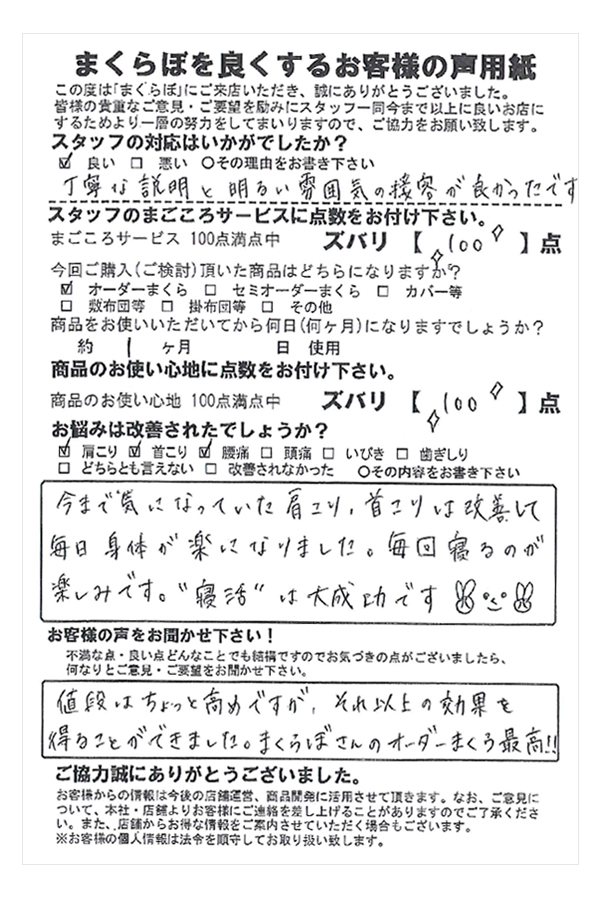 まくらぼを良くするお客様の声用紙
この度は「まくらぼ」にご来店いただき、誠にありがとうございました。
皆様の貴重なご意見・ご要望を励みにスタッフ一同今まで以上に良いお店に
するためより一層の努力をしてまいりますので、ご協力をお願い致します。
スタッフの対応はいかがでしたか?
☑ 良い □ 悪い ○その理由をお書き下さい
丁寧な説明と明るい雰囲気の接客が良かったです
スタッフのまごころサービスに点数をお付け下さい。
まごころサービス 100点満点中 ズバリ【 100 】点
今回ご購入(ご検討)頂いた商品はどちらになりますか?
☑ オーダーまくら □ セミオーダーまくら □ カバー等
□ 敷布団等 □ 掛布団等 □ その他
商品をお使いいただいてから何日(何ヶ月)になりますでしょうか?
約 1 ヶ月 日 使用
商品のお使い心地に点数をお付け下さい。
商品のお使い心地 100点満点中 ズバリ【 100 】点
お悩みは改善されたでしょうか?
☑ 肩こり ☑ 首こり ☑ 腰痛 □ 頭痛 □ いびき □ 歯ぎしり
□ どちらとも言えない □ 改善されなかった ○その内容をお書き下さい
今まで気になっていた肩こり、首こりは改善して
毎日身体が楽になりました。毎回寝るのが
楽しみです。“寝活“は大成功です
お客様の声をお聞かせ下さい!
不満な点・良い点どんなことでも結構ですのでお気づきの点がございましたら、
何なりとご意見・ご要望をお聞かせ下さい。
値段はちょっと高めですが、それ以上の効果を
得ることができました。まくらぼさんのオーダーまくら最高!!
ご協力誠にありがとうございました。
お客様からの情報は今後の店舗運営、商品開発に活用させて頂きます。なお、ご意見に
ついて、本社・店舗よりお客様にご連絡を差し上げることがありますのでご了承くださ
い。また、店舗からお得な情報をご案内させていただく場合もございます。
※お客様の個人情報は法令を順守してお取り扱い致します。